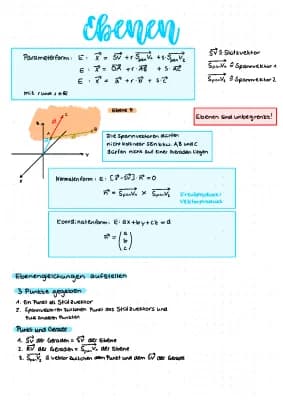 Ebenen
Parameterform: E: x⃗ = SV⃗ + r·SpanV₁⃗ + s·SpanV₂⃗
E: x⃗ = OA⃗ + r·AB⃗ + s·AC⃗
E: x⃗ = a⃗ + r·b⃗ + s·c⃗
mit r und s ∈ ℝ
SV⃗ ≙ Stützvektor
SpanV₁⃗ ≙ Spannvektor 1
SpanV₂⃗ ≙ Spannvektor 2
Ebene E
Ebenen sind unbegrenzt!
Die Spannvektoren dürfen
nicht kollinear sein bzw. A, B und C
dürfen nicht auf einer Geraden liegen
Normalenform: E: [x⃗ - SV⃗] · n⃗ = 0
n⃗ = SpanV₁⃗ × SpanV₂⃗
Kreuzprodukt/
Vektorprodukt
Coordinatenform: E: ax + by + cz = d
n⃗ = (a b c)
Ebenengleichungen aufstellen
3 Punkte gegeben
1. Ein Punkt als Stützvektor
2. Spannvektoren zwischen Punkt des Stützvektors und
den anderen Punkten
Punkt und Gerade
1. SV⃗ der Geraden = SV⃗ der Ebene
2. RV⃗ der Geraden = SpanV₁⃗ der Ebene
3. SpanV₂⃗ ≙ Vektor zwischen dem Punkt und dem SV⃗ der Gerade